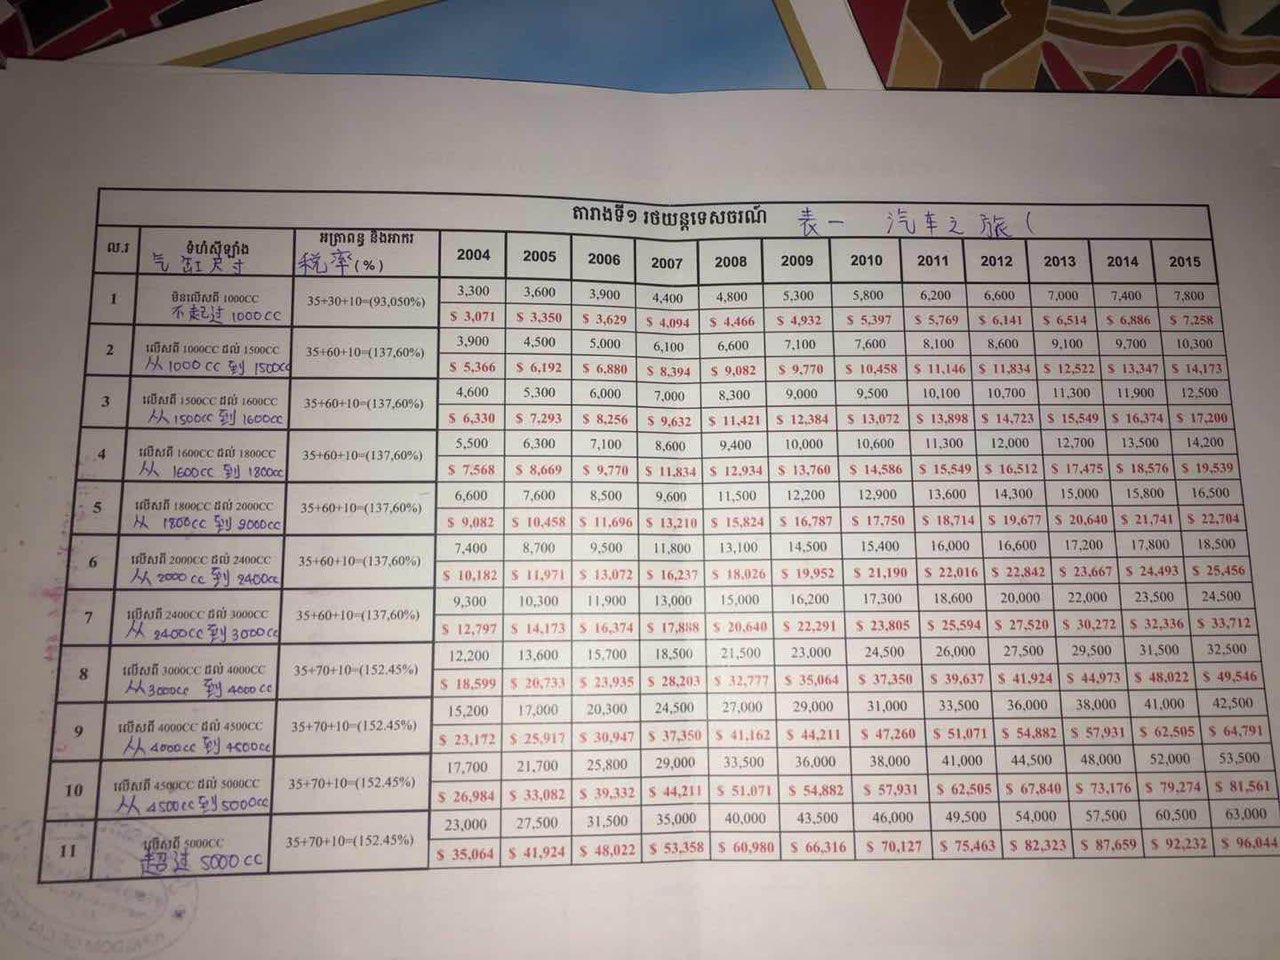 តារាងទី១ រថយន្តទេសចរណ៍ 表一 汽车之旅 (
ល.រ ទំហំស៊ីឡាំង 气缸尺寸 អត្រាពន្ធ និងអាករ 税率(%) 2004 2005 2006 2007 2008 2009 2010 2011 2012 2013 2014 2015
1 មិនលើសពី 1000CC 35+30+10=(93,050%) 3,300 3,600 3,900 4,400 4,800 5,300 5,800 6,200 6,600 7,000 7,400 7,800
不起过 1000CC $ 3,071 $ 3,350 $ 3,629 $ 4,094 $ 4,466 $ 4,932 $ 5,397 $ 5,769 $ 6,141 $ 6,514 $ 6,886 $ 7,258
2 លើសពី 1000CC ដល់ 1500CC 35+60+10=(137,60%) 3,900 4,500 5,000 6,100 6,600 7,100 7,600 8,100 8,600 9,100 9,700 10,300
从 1000CC 到 1500CC $ 5,366 $ 6,192 $ 6,880 $ 8,394 $ 9,082 $ 9,770 $ 10,458 $ 11,146 $ 11,834 $ 12,522 $ 13,347 $ 14,173
3 លើសពី 1500CC ដល់ 1600CC 35+60+10=(137,60%) 4,600 5,300 6,000 7,000 8,300 9,000 9,500 10,100 10,700 11,300 11,900 12,500
从 1500CC 到 1600CC $ 6,330 $ 7,293 $ 8,256 $ 9,632 $ 11,421 $ 12,384 $ 13,072 $ 13,898 $ 14,723 $ 15,549 $ 16,374 $ 17,200
4 លើសពី 1600CC ដល់ 1800CC 35+60+10=(137,60%) 5,500 6,300 7,100 8,600 9,400 10,000 10,600 11,300 12,000 12,700 13,500 14,200
从 1600CC 到 1800CC $ 7,568 $ 8,669 $ 9,770 $ 11,834 $ 12,934 $ 13,760 $ 14,586 $ 15,549 $ 16,512 $ 17,475 $ 18,576 $ 19,539
5 លើសពី 1800CC ដល់ 2000CC 35+60+10=(137,60%) 6,600 7,600 8,500 9,600 11,500 12,200 12,900 13,600 14,300 15,000 15,800 16,500
从 1800CC 到 2000CC $ 9,082 $ 10,458 $ 11,696 $ 13,210 $ 15,824 $ 16,787 $ 17,750 $ 18,714 $ 19,677 $ 20,640 $ 21,741 $ 22,704
6 លើសពី 2000CC ដល់ 2400CC 35+60+10=(137,60%) 7,400 8,700 9,500 11,800 13,100 14,500 15,400 16,000 16,600 17,200 17,800 18,500
从 2000CC 到 2400CC $ 10,182 $ 11,971 $ 13,072 $ 16,237 $ 18,026 $ 19,952 $ 21,190 $ 22,016 $ 22,842 $ 23,667 $ 24,493 $ 25,456
7 លើសពី 2400CC ដល់ 3000CC 35+60+10=(137,60%) 9,300 10,300 11,900 13,000 15,000 16,200 17,300 18,600 20,000 22,000 23,500 24,500
从 2400CC 到 3000CC $ 12,797 $ 14,173 $ 16,374 $ 17,888 $ 20,640 $ 22,291 $ 23,805 $ 25,594 $ 27,520 $ 30,272 $ 32,336 $ 33,712
8 លើសពី 3000CC ដល់ 4000CC 35+70+10=(152.45%) 12,200 13,600 15,700 18,500 21,500 23,000 24,500 26,000 27,500 29,500 31,500 32,500
从 3000CC 到 4000CC $ 18,599 $ 20,733 $ 23,935 $ 28,203 $ 32,777 $ 35,064 $ 37,350 $ 39,637 $ 41,924 $ 44,973 $ 48,022 $ 49,546
9 លើសពី 4000CC ដល់ 4500CC 35+70+10=(152.45%) 15,200 17,000 20,300 24,500 27,000 29,000 31,000 33,500 36,000 38,000 41,000 42,500
从 4000CC 到 4500CC $ 23,172 $ 25,917 $ 30,947 $ 37,350 $ 41,162 $ 44,211 $ 47,260 $ 51,071 $ 54,882 $ 57,931 $ 62,505 $ 64,791
10 លើសពី 4500CC ដល់ 5000CC 35+70+10=(152.45%) 17,700 21,700 25,800 29,000 33,500 36,000 38,000 41,000 44,500 48,000 52,000 53,500
从 4500CC 到 5000CC $ 26,984 $ 33,082 $ 39,332 $ 44,211 $ 51,071 $ 54,882 $ 57,931 $ 62,505 $ 67,840 $ 73,176 $ 79,274 $ 81,561
11 លើសពី 5000CC 35+70+10=(152.45%) 23,000 27,500 31,500 35,000 40,000 43,500 46,000 49,500 54,000 57,500 60,500 63,000
超过 5000CC $ 35,064 $ 41,924 $ 48,022 $ 53,358 $ 60,980 $ 66,316 $ 70,127 $ 75,463 $ 82,323 $ 87,659 $ 92,232 $ 96,044